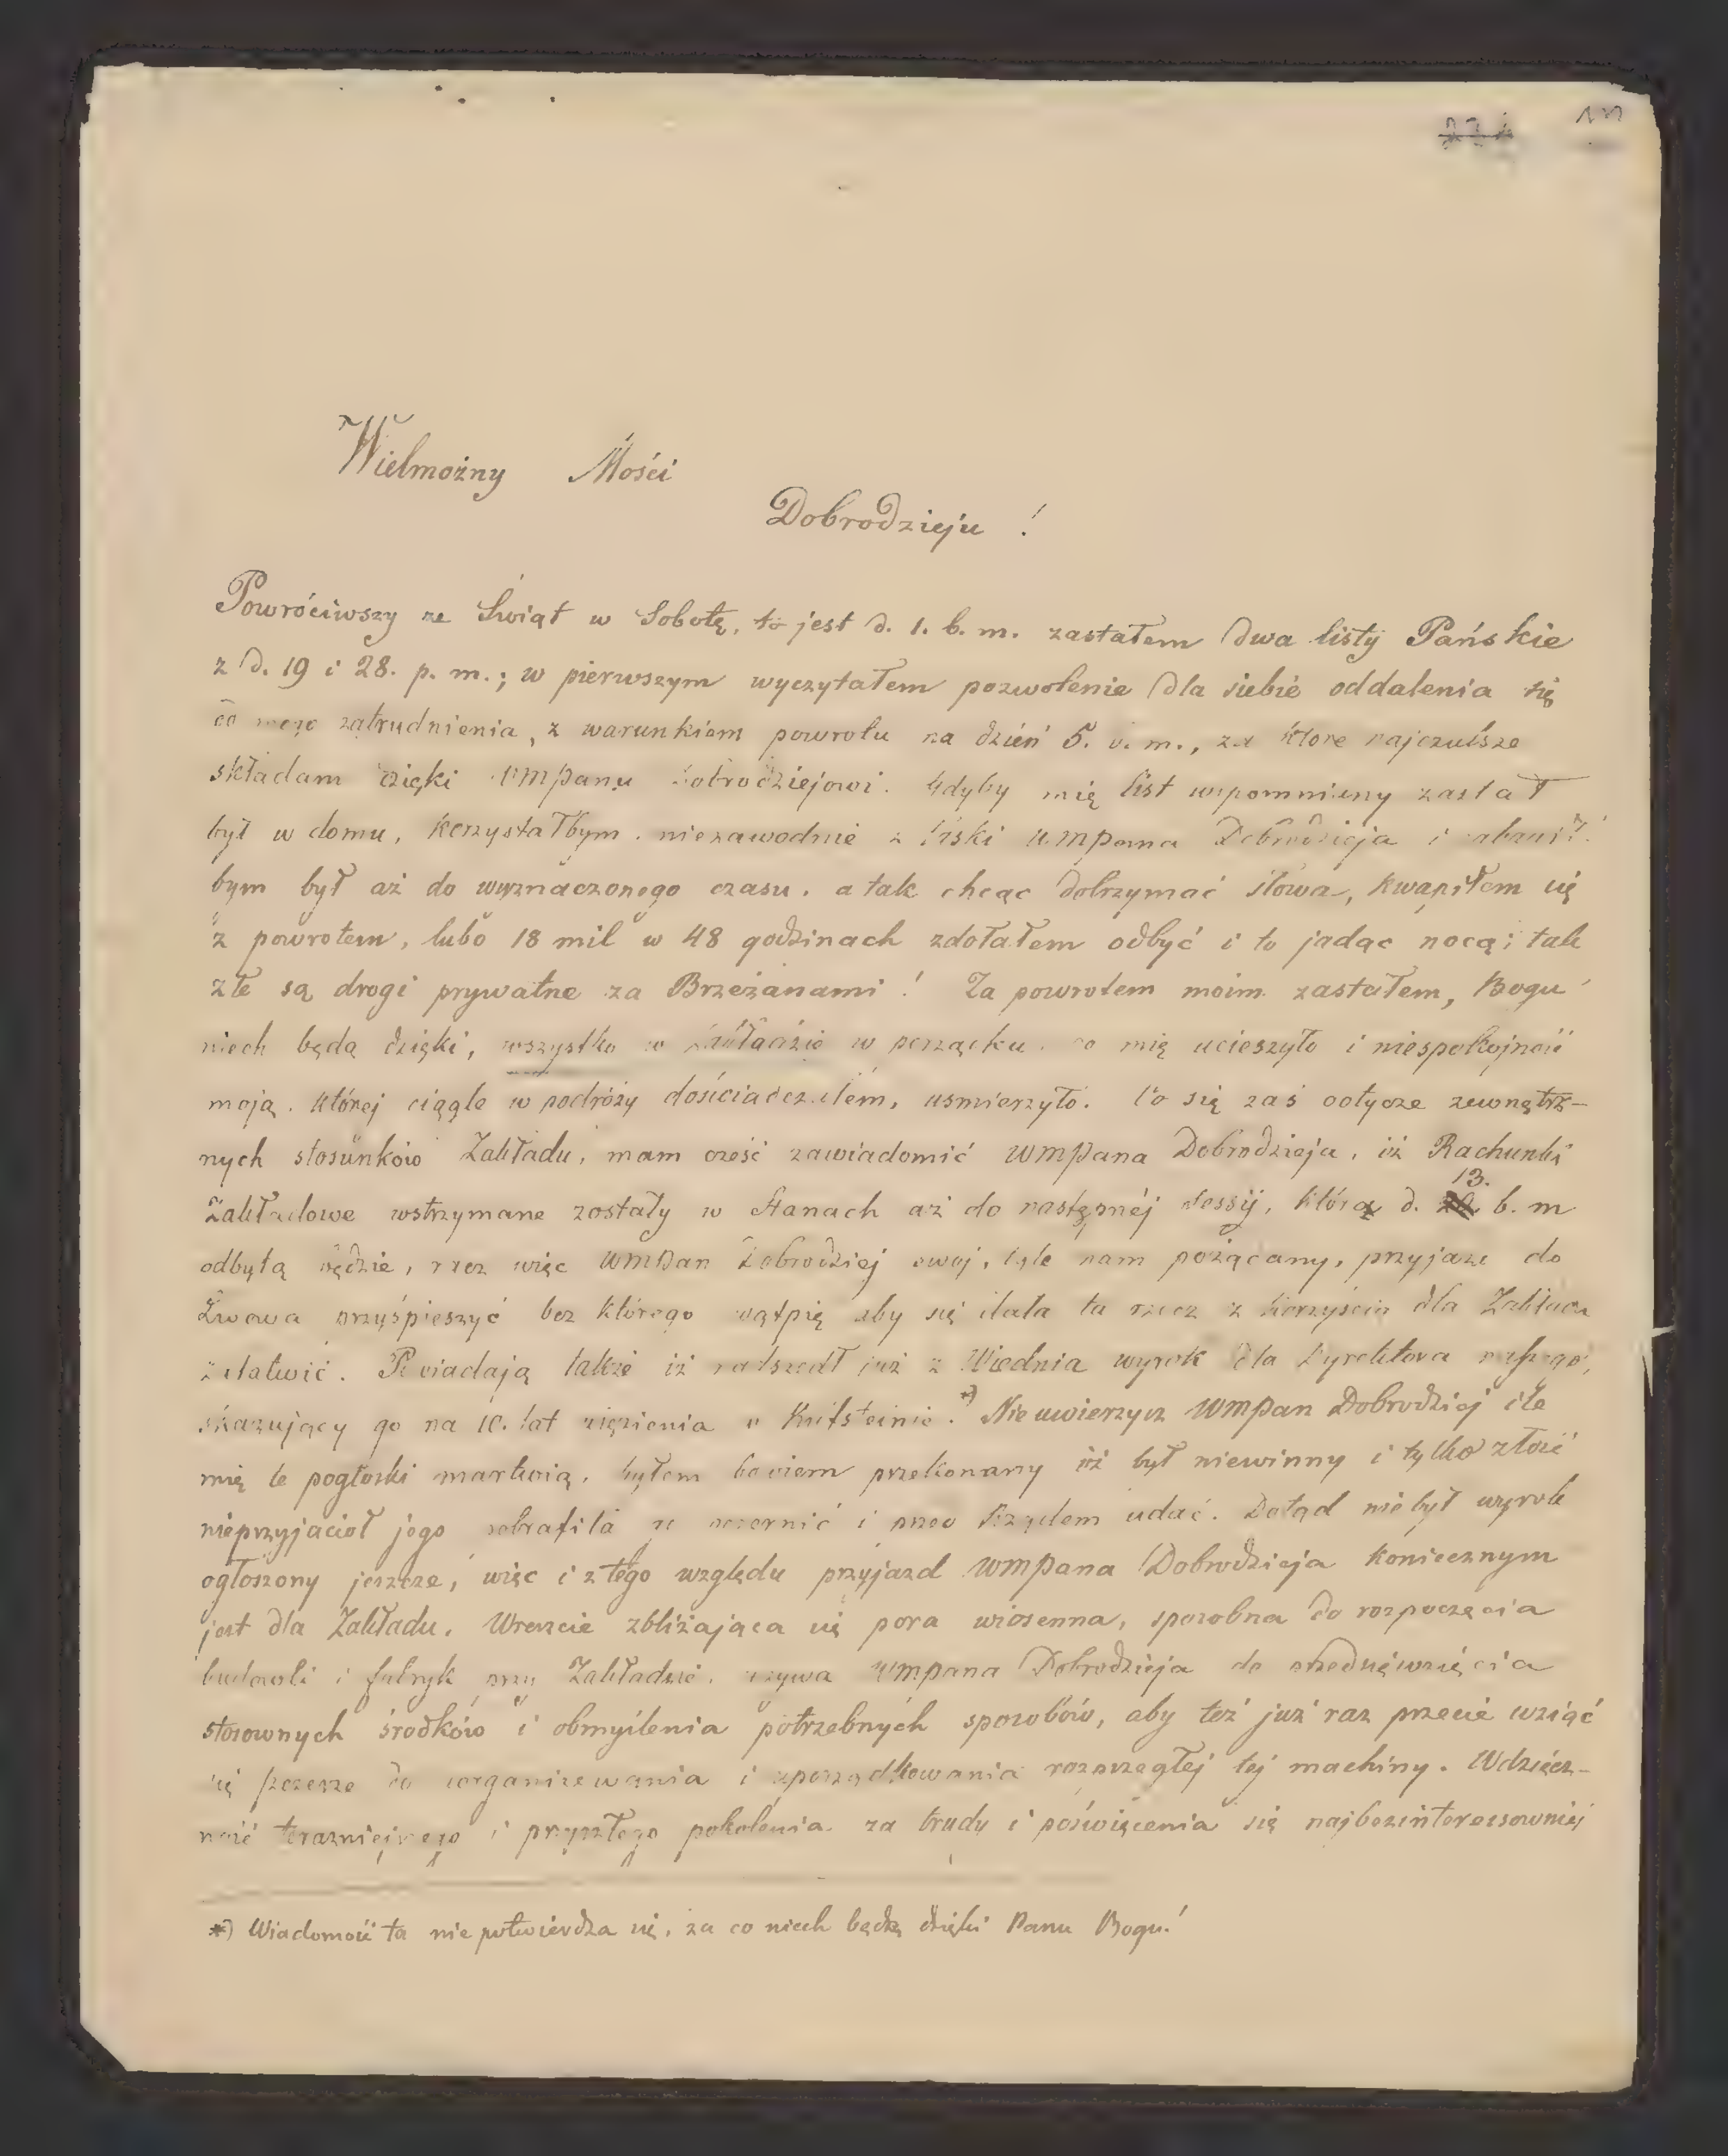 Wielmożny Mości
Dobrodzieju !
Powróciwszy ze Świąt w Sobotę, to jest d. 1. b. m. zastałem dwa listy Pańskie
z d. 19 i 28. p. m.; w pierwszym wyczytałem pozwolenie dla siebie oddalenia się
od mego zatrudnienia, z warunkiem powrotu na dzień 5. b. m., za które najczulsze
składam dzięki WMPanu Dobrodziejowi. Gdyby mię list wspomniany zastał
był w domu, korzystałbym niezawodnie z łaski WMPana Dobrodzieja i
bym był aż do wyznaczonego czasu. a tak chcąc dotrzymać słowa, kwapiłem się
z powrotem, lubo 18 mil w 48 godzinach zdołałem odbyć i to jadąc nocą; tak
złe są drogi prywatne za Brzeżanami! Za powrotem moim zastałem, Bogu
niech będą dzięki, wszystko w Zakładzie w porządku. co mię ucieszyło i niespokojność
moją, której ciągle w podróży doświadczałem, uśmierzyło. Co się zaś dotycze zewnętrz-
nych stosunków Zakładu, mam cześć zawiadomić WMPana Dobrodzieja, iż Rachunki
Zakładowe wstrzymane zostały w Stanach aż do następnéj Sessij, która d. 13. b. m
odbytą będzie, racz więc WMPan Dobrodziej swój, tyle nam pożądany, przyjazd do
Lwowa przyśpieszyć bez którego wątpię aby się dała ta rzecz z korzyścią dla Zakładu
załatwić. Powiadają także iż nadszedł już z Wiednia wyrok dla Dyrektora naszego,
skazujący go na 10. lat więzienia w Kufsteinie.*) Nie uwierzysz WMPan Dobrodziej ile
mię te pogłoski martwią, byłem bowiem przekonany iż był niewinny i tylko złość
nieprzyjaciół jego potrafiła go oczernić i przed Rządem udać. Dotąd nie był wyrok
ogłoszony jeszcze, więc i z tego względu przyjazd WMPana Dobrodzieja koniecznym
jest dla Zakładu. Wreszcie zbliżająca się pora wiosenna, sposobna do rozpoczęcia
budowli i fabryk przy Zakładzie, wzywa WMPana Dobrodzieja do przedsięwzięcia
stosownych środków i obmyślenia potrzebnych sposobów, aby też już raz przecie wziąć
się szczerze do zorganizowania i uporządkowania rozprzęgłej tej machiny. Wdzięcz-
ność teraźniejszego i przyszłego pokolenia za trudy i poświęcenia się najbezinteressowniej
*) Wiadomość ta nie potwierdza się, za co niech będą dzięki Panu Bogu!